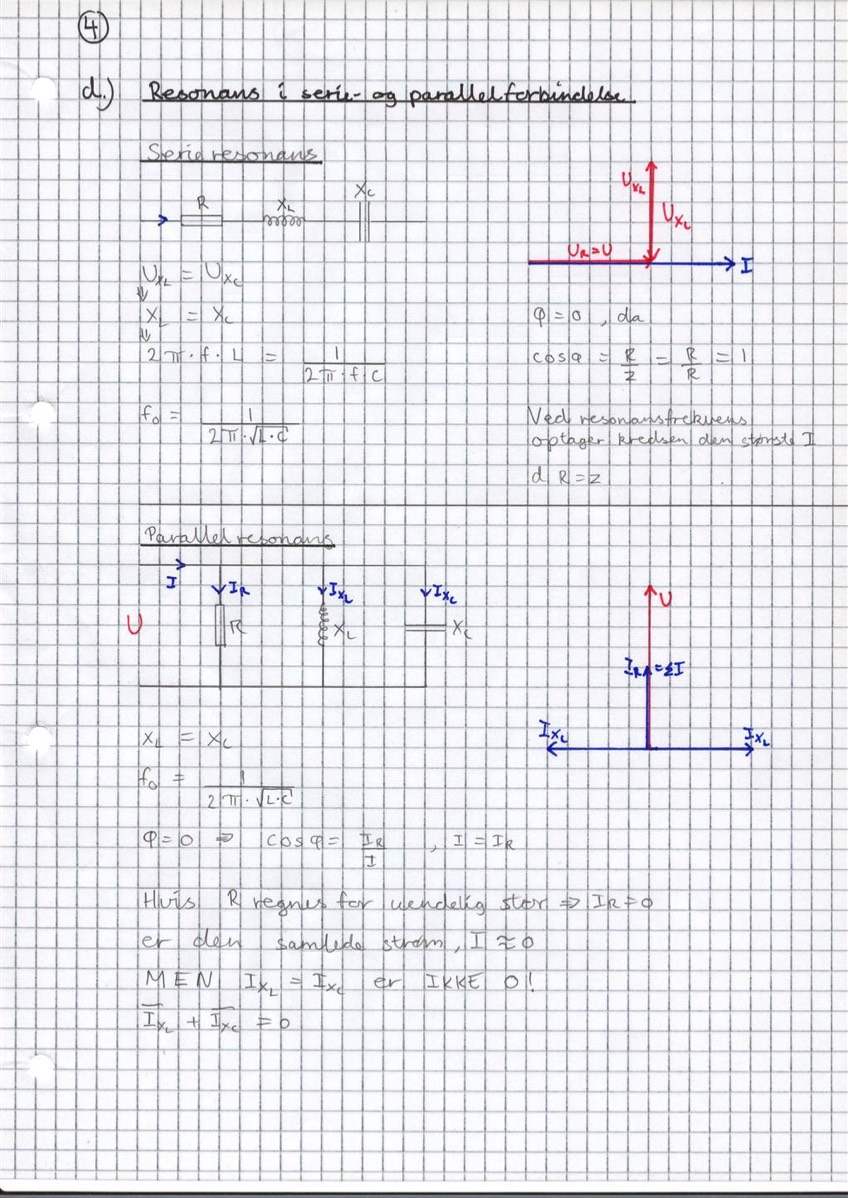 4
d.) Resonans i serie- og parallelforbindelse
Serieresonans
R X_L X_C
U_XL = U_XC
⇓
X_L = X_C
⇓
2π·f·L = 1/(2π·f·C)
f₀ = 1/(2π·√(L·C))
U_XL
U_XL
U_R=U
I
φ=0, da
cosφ = R/Z = R/R = 1
Ved resonansfrekvens
optager kredsen den største I
d R=Z
Parallelresonans
I I_R I_XL I_XC
U R X_L X_C
U
I_R=ΣI
I_XL I_XL
X_L = X_C
f₀ = 1/(2π·√(L·C))
φ=0 ⇒ cosφ = I_R/I , I = I_R
Hvis R regnes for uendelig stor ⇒ I_R=0
er den samlede strøm, I ≈ 0
MEN I_XL = I_XC er IKKE 0!
I̅_XL + I̅_XC = 0